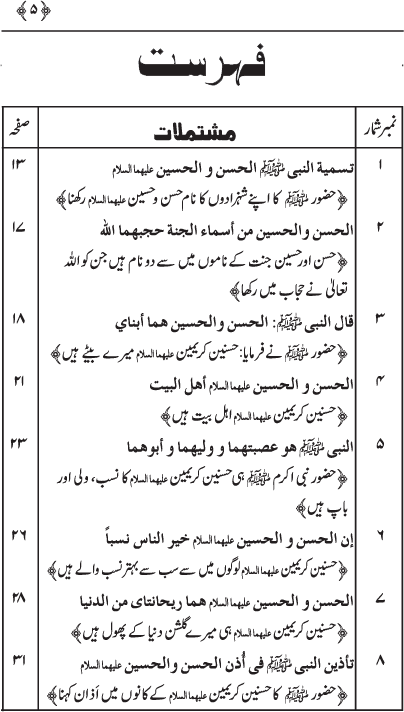 ﴿۵﴾
فہرست
نمبر شمار مشتملات صفحہ
۱ تسمية النبی ﷺ الحسن و الحسين علیہما السلام ۱۳
﴿حضور ﷺ کا اپنے شہزادوں کا نام حسن و حسین علیہما السلام رکھنا﴾
۲ الحسن والحسين من أسماء الجنة حجبهما الله ۱۷
﴿حسن اور حسین جنت کے ناموں میں سے دو نام ہیں جن کو اللہ
تعالیٰ نے حجاب میں رکھا﴾
۳ قال النبی ﷺ: الحسن والحسين هما أبنائي ۱۸
﴿حضور ﷺ نے فرمایا: حسنین کریمین علیہما السلام میرے بیٹے ہیں﴾
۴ الحسن و الحسين علیہما السلام أهل البيت ۲۱
﴿حسنین کریمین علیہما السلام اہل بیت ہیں﴾
۵ النبی ﷺ هو عصبتهما و وليهما و أبوهما ۲۳
﴿حضور نبی اکرم ﷺ ہی حسنین کریمین علیہما السلام کا نسب، ولی اور
باپ ہیں﴾
۶ إن الحسن و الحسين علیہما السلام خير الناس نسباً ۲۶
﴿حسنین کریمین علیہما السلام لوگوں میں سے سب سے بہتر نسب والے ہیں﴾
۷ الحسن و الحسين علیہما السلام هما ريحانتاى من الدنيا ۲۸
﴿حسنین کریمین علیہما السلام ہی میرے گلشن دنیا کے پھول ہیں﴾
۸ تأذين النبی ﷺ فی أُذن الحسن والحسين علیہما السلام ۳۱
﴿حضور ﷺ کا حسنین کریمین علیہما السلام کے کانوں میں اَذان کہنا﴾